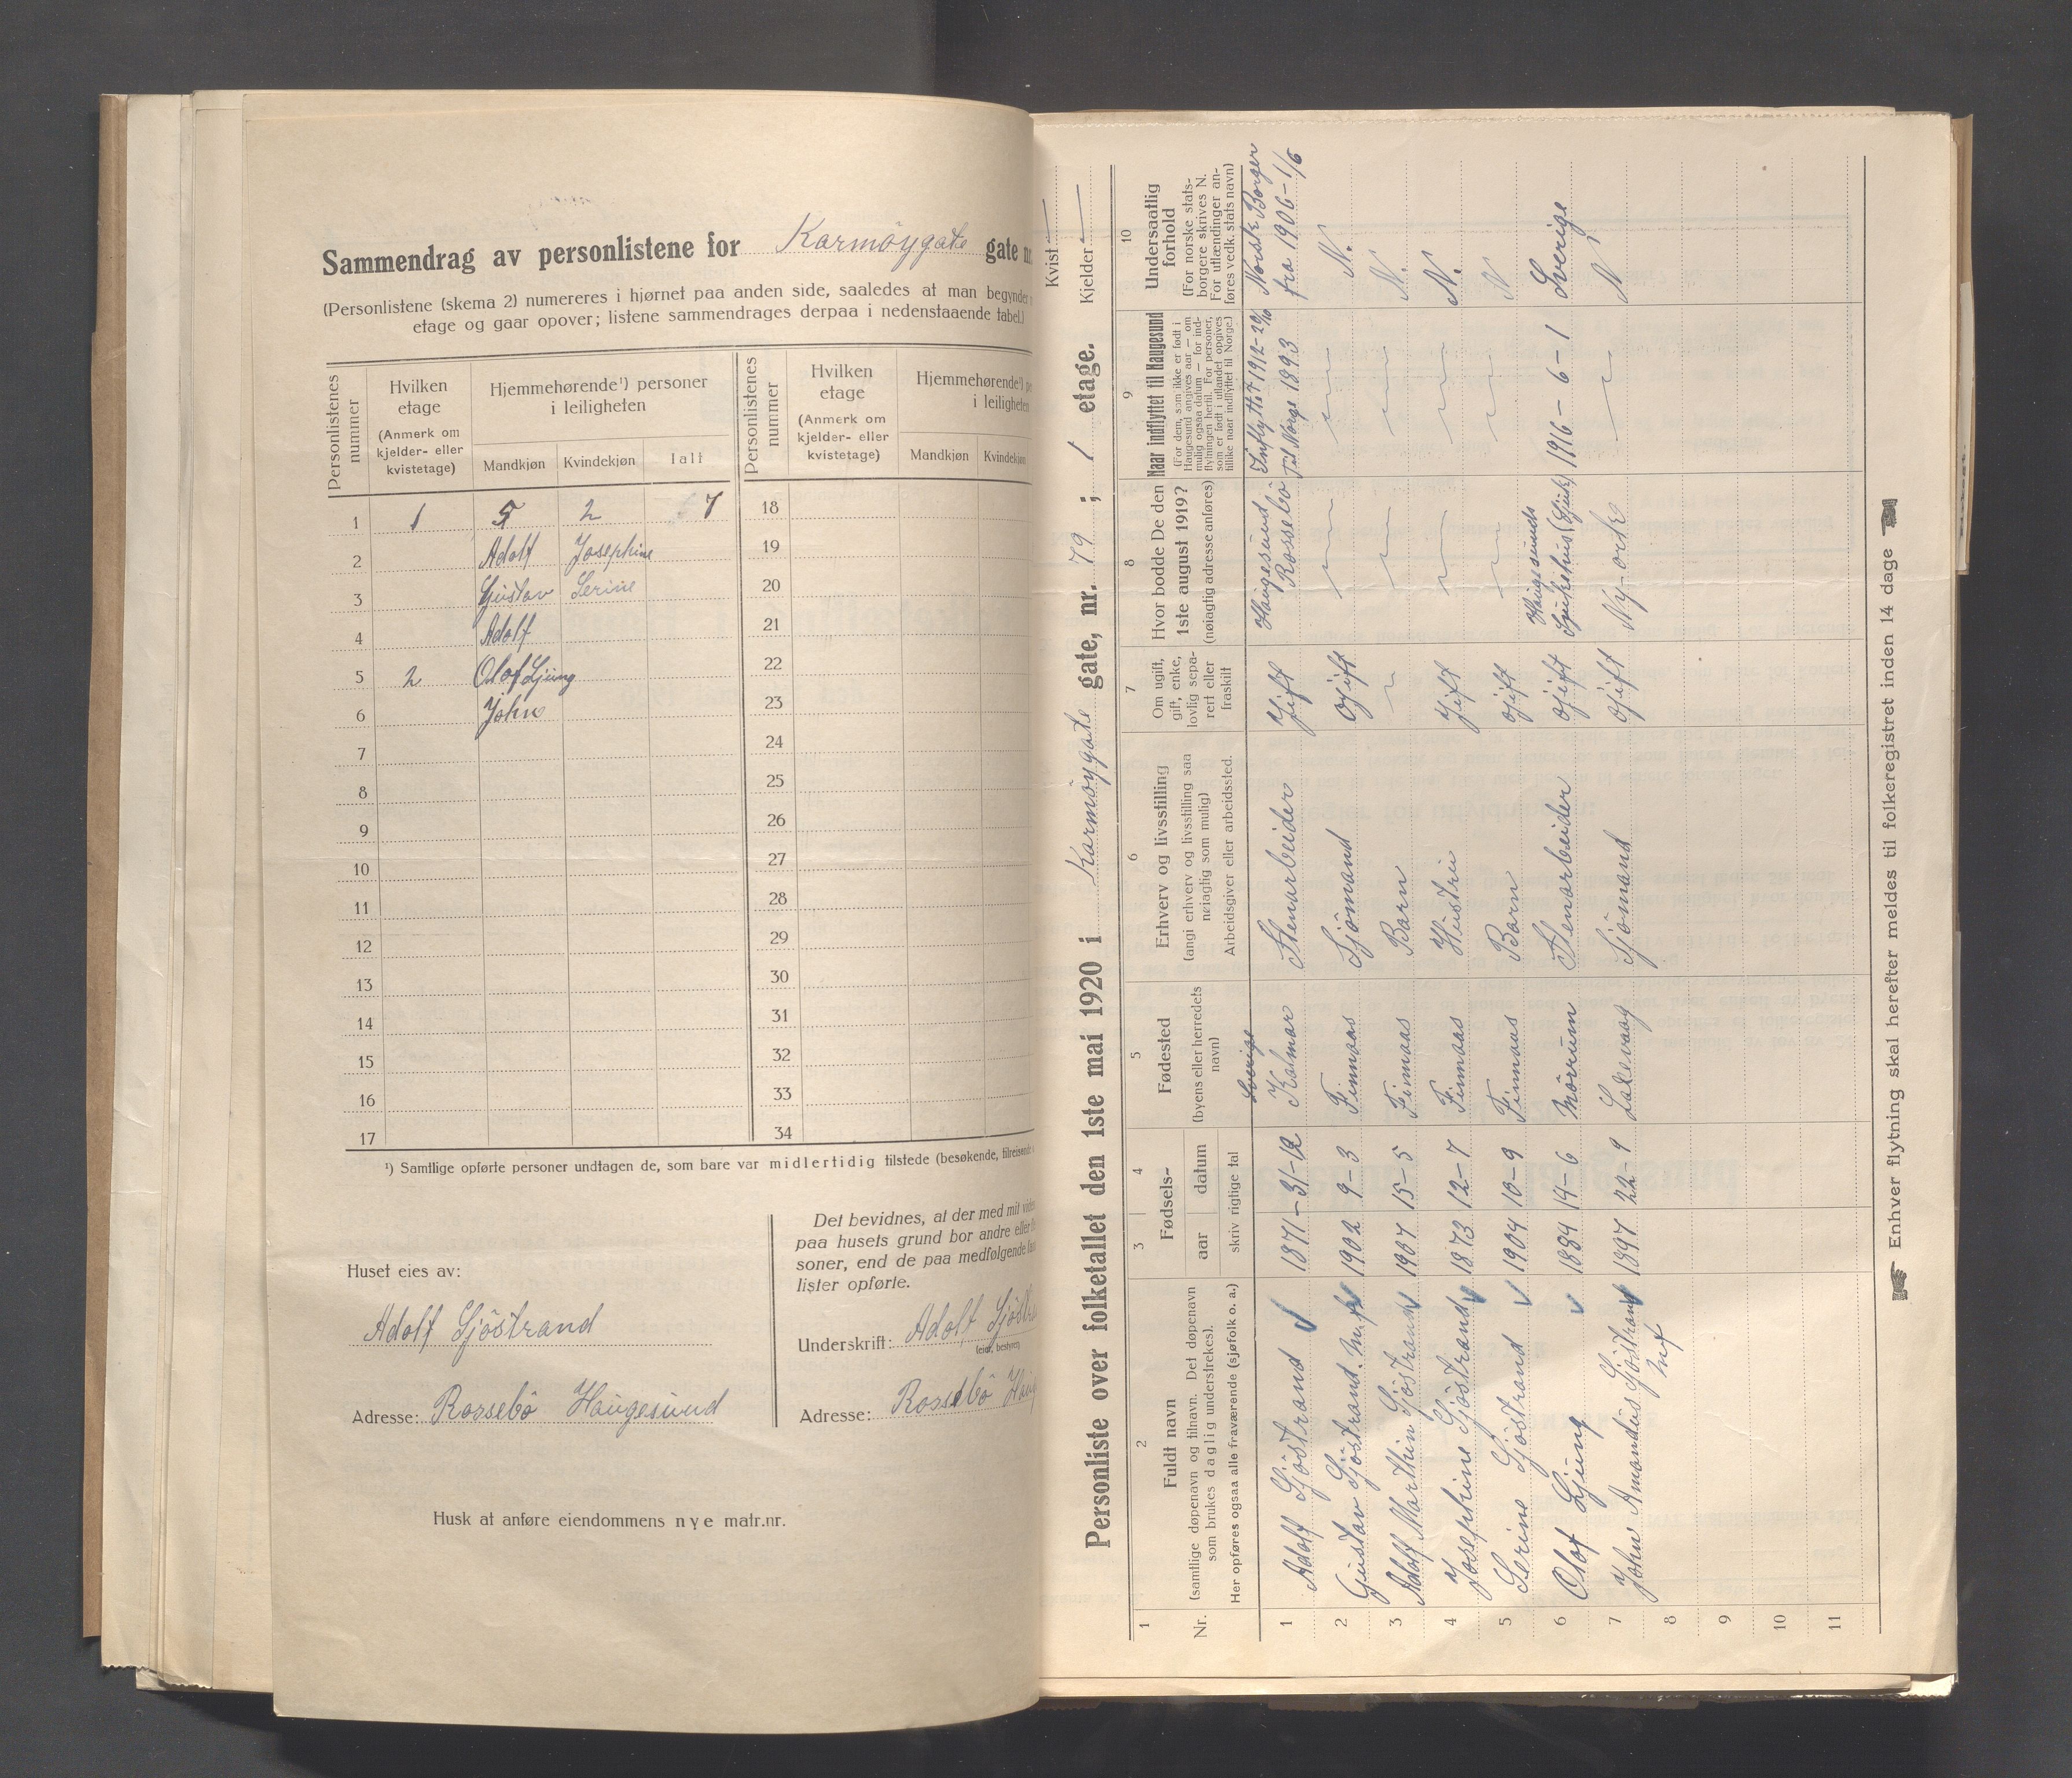 Sammendrag av personlistene for Karmöygate gate nr.
(Personlistene (skema 2) numereres i hjørnet paa anden side, saaledes at man begynder
etage og gaar opover; listene sammendrages derpaa i nedenstaaende tabel.)
Personlistenes nummer
Hvilken etage
(Anmerk om kjelder- eller kvistetage)
Hjemmehørende¹) personer i leiligheten
Mandkjøn Kvindekjøn Ialt
Personlistenes nummer
Hvilken etage
(Anmerk om kjelder- eller kvistetage)
Hjemmehørende¹) pe
i leiligheten
Mandkjøn Kvindekjøn
1 1 5 2 7 18
2 Adolf Josephine 19
3 Gustav Serine 20
4 Adolf 21
5 2 Olof Ljung 22
6 John 23
7 24
8 25
9 26
10 27
11 28
12 29
13 30
14 31
15 32
16 33
17 34
¹) Samtlige opførte personer undtagen de, som bare var midlertidig tilstede (besøkende, tilreisende
Huset eies av:
Adolf Sjöstrand
Adresse: Rossebö Haugesund
Det bevidnes, at der med mit viden
paa husets grund bor andre eller
soner, end de paa medfølgende
lister opførte.
Underskrift: Adolf Sjöstra
(eier, bestyrer)
Adresse: Rossebö Haug
Husk at anføre eiendommens nye matr.nr.
Kvist —
Kjelder —
Personliste over folketallet den 1ste mai 1920 i Karmöygate gate, nr. 79 ; 1 etage.
1 2 3 4 5 6 7 8 9 10
Nr.
Fuldt navn
(samtlige døpenavn og tilnavn. Det døpenavn
som brukes daglig understrekes).
Her opføres ogsaa alle fraværende (sjøfolk o. a.)
Fødsels-
aar datum
skriv rigtige tal
Fødested
(byens eller herredets
navn)
Erhverv og livsstilling
(angi erhverv og livsstilling saa
nøiaglig som mulig)
Arbeidsgiver eller arbeidssted.
Om ugift,
gift, enke,
lovlig sepa-
rert eller
fraskilt
Hvor bodde De den
1ste august 1919?
(nøiagtig adresse anføres)
Naar indflyttet til Haugesund
(For dem, som ikke er født i
Haugesund angives aar — om
mulig ogsaa datum — for ind-
flytningen hertil. For personer,
som er født i utlandet opgives
tillike naar indflyttet til Norge.)
Undersaatlig
forhold
(For norske stats-
borgere skrives N.
For utlændinger an-
føres vedk. stats navn)
1 Adolf Sjöstrand 1871 – 31-12 Sverige Kalmar Stenarbeider Gift Haugesund Rossebö Inflyttet 1912-20/10 Til Norge 1893 Norsk Borger fra 1906-1/6
2 Gustav Sjöstrand. 1902 9-3 Finnaas Sjömand ugift — — N.
3 Adolf Marthin Sjöstrand 1907 15-5 Finnaas Barn — — — N.
4 Josephine Sjöstrand 1873 12-7 Finnaas Hustru Gift — — N.
5 Serine Sjöstrand 1904 10-9 Finnaas Barn ugift — — N
6 Olof Ljung 1889 14-6 Mörrum Stenarbeider ugift Haugesunds Sjukehus (Sjuk) 1916 – 6 – 1 Sverige
7 John Amandus Sjöstrand 1897 22-9 Laxevaag Sjömand ugift Ny-ork — N
8
9
10
11
Enhver flytning skal herefter meldes til folkeregistret inden 14 dage